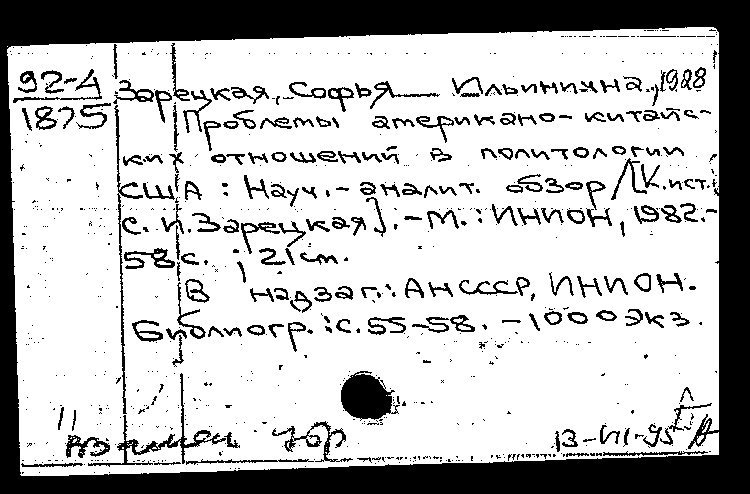 92-4
1875
Зарецкая, Софья Ильинична, 1928
Проблемы американо-китайс-
ких отношений в политологии
США : Науч.-аналит. обзор / [К.ист.
с. И. Зарецкая]. - М. : ИНИОН, 1982.-
58 с. ; 21 см.
В надзаг.: АН СССР, ИНИОН.
Библиогр. : с. 55-58. - 1000 экз.
13-VII-95